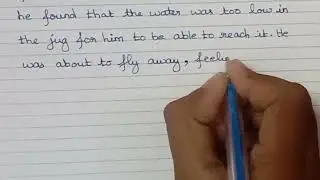 he found that the water was too low in
the jug for him to be able to reach it. He
was about to fly away, feelin